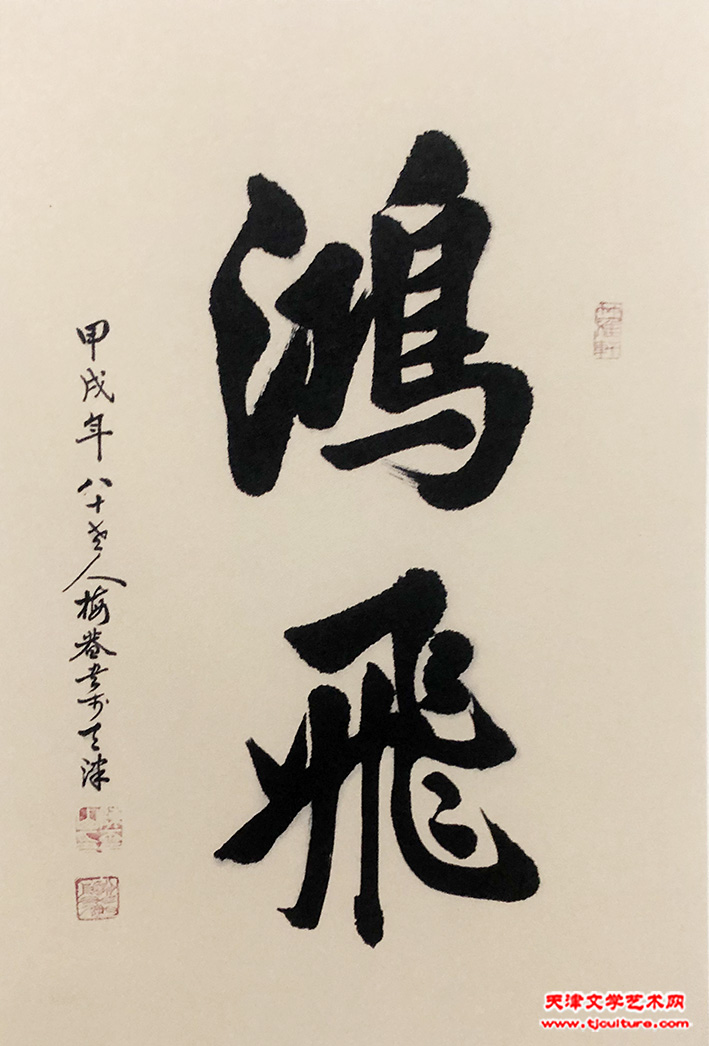 鸿飛
甲戌年八十老人梅菴书於天津
天津文学艺术网
www.tjculture.com